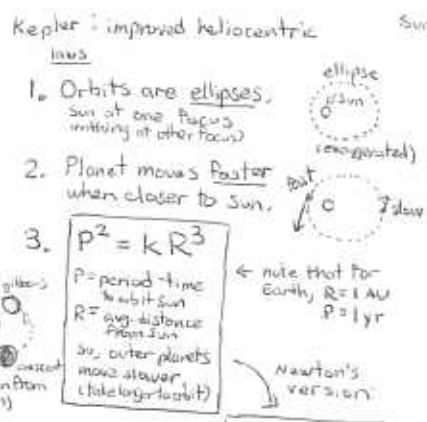 Kepler : improved heliocentric
laws
1. Orbits are ellipses.
Sun at one focus
(nothing at other focus)
ellipse
sun
(exaggerated)
2. Planet moves faster
when closer to sun.
fast
slow
3. P² = k R³
P = period - time
to orbit sun
R = avg. distance
from sun
so, outer planets
move slower
(take longer to orbit)
← note that for
Earth, R = 1 AU
P = 1 yr
Newton's
version